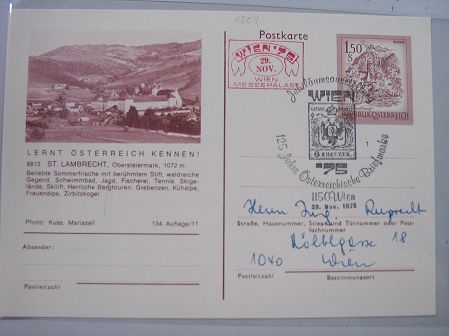 1204
Postkarte
WIEN·75
29.
NOV.
WIEN
MESSEPALAST
1.50
S
REPUBLIK ÖSTERREICH
Jubiläumsausstellung
WIEN
6 KREUZER
'75
125 Jahre Österreichische Briefmarke
1150 Wien
29. Nov. 1975
1
LERNT ÖSTERREICH KENNEN!
8813 ST. LAMBRECHT, Obersteiermark, 1072 m
Beliebte Sommerfrische mit berühmtem Stift, waldreiche
Gegend, Schwimmbad, Jagd, Fischerei, Tennis, Skige-
lände, Skilift, Herrliche Bergtouren: Grebenzen, Kühalpe,
Frauenalpe, Zirbitzkogel
Photo: Kuss, Mariazell 134 Auflage/11
Absender:
Postleitzahl
Herrn Ing. Ruprecht
Straße, Hausnummer, Stiege und Türnummer oder Post-
fachnummer
18
1040 Wien
Postleitzahl Bestimmungsort